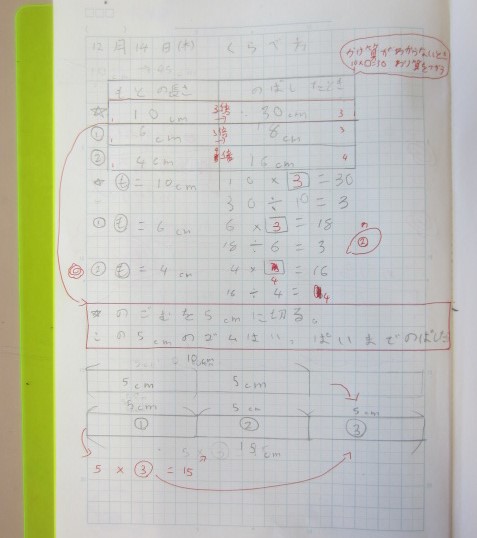 12月14日(木) くらべ方
かけ算がわからないとき
10×□=30 わり算をする
もとの長さ のばしたとき
☆ 10cm 3倍→ 30cm 3
① 6cm 3倍→ 18cm 3
② 4cm 4倍 16cm 4
☆ も = 10cm 10 × 3 = 30
30 ÷ 10 = 3
① も = 6cm 6 × 3 = 18
18 ÷ 6 = 3
②
② も = 4cm 4 × 4 = 16
16 ÷ 4 = 4
☆ のごむを5cmに切る。
この5cmのゴムはい、ばいまでのばした
5cm 5cm
5cm 5cm 5cm
① ② ③
15cm
5 × ③ = 15